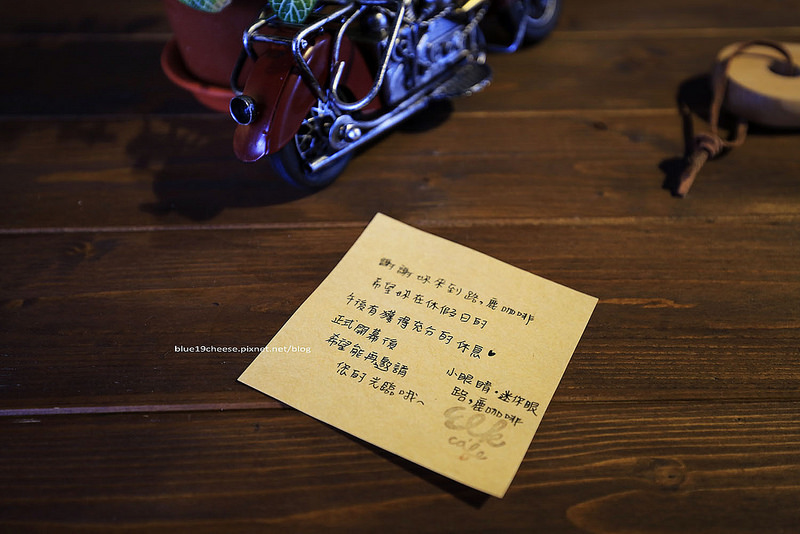 謝謝妳來到路,鹿咖啡
希望妳在休假日的
午後有獲得充分的休息♥
正式開幕後
希望能再邀請
您的光臨哦~
小眼睛·迷你眼
路,鹿咖啡
elk
cafe
blue19cheese.pixnet.net/blog